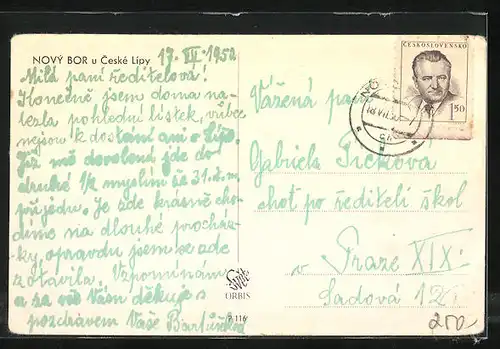 NOVÝ BOR u České Lípy
17. VII. 1950
Milá paní ředitelová!
Konečně jsem doma na-
lezla pohlední lístek, vůbec
nejsou k dostání ani v Lípě.
Již má dovolená jde do
druhé 1/2 myslím že 31. t. m.
přijedu. Je zde krásně cho-
díme na dlouhé procház-
ky, opravdu jsem se zde
zotavila. Vzpomínám
a za vše Vám děkuje s
pozdravem Vaše
ORBIS
P 116
ČESKOSLOVENSKO
1.50
Vážená paní
Gabriela
chot po řediteli škol
v Praze XIX.
Sadová
250,-